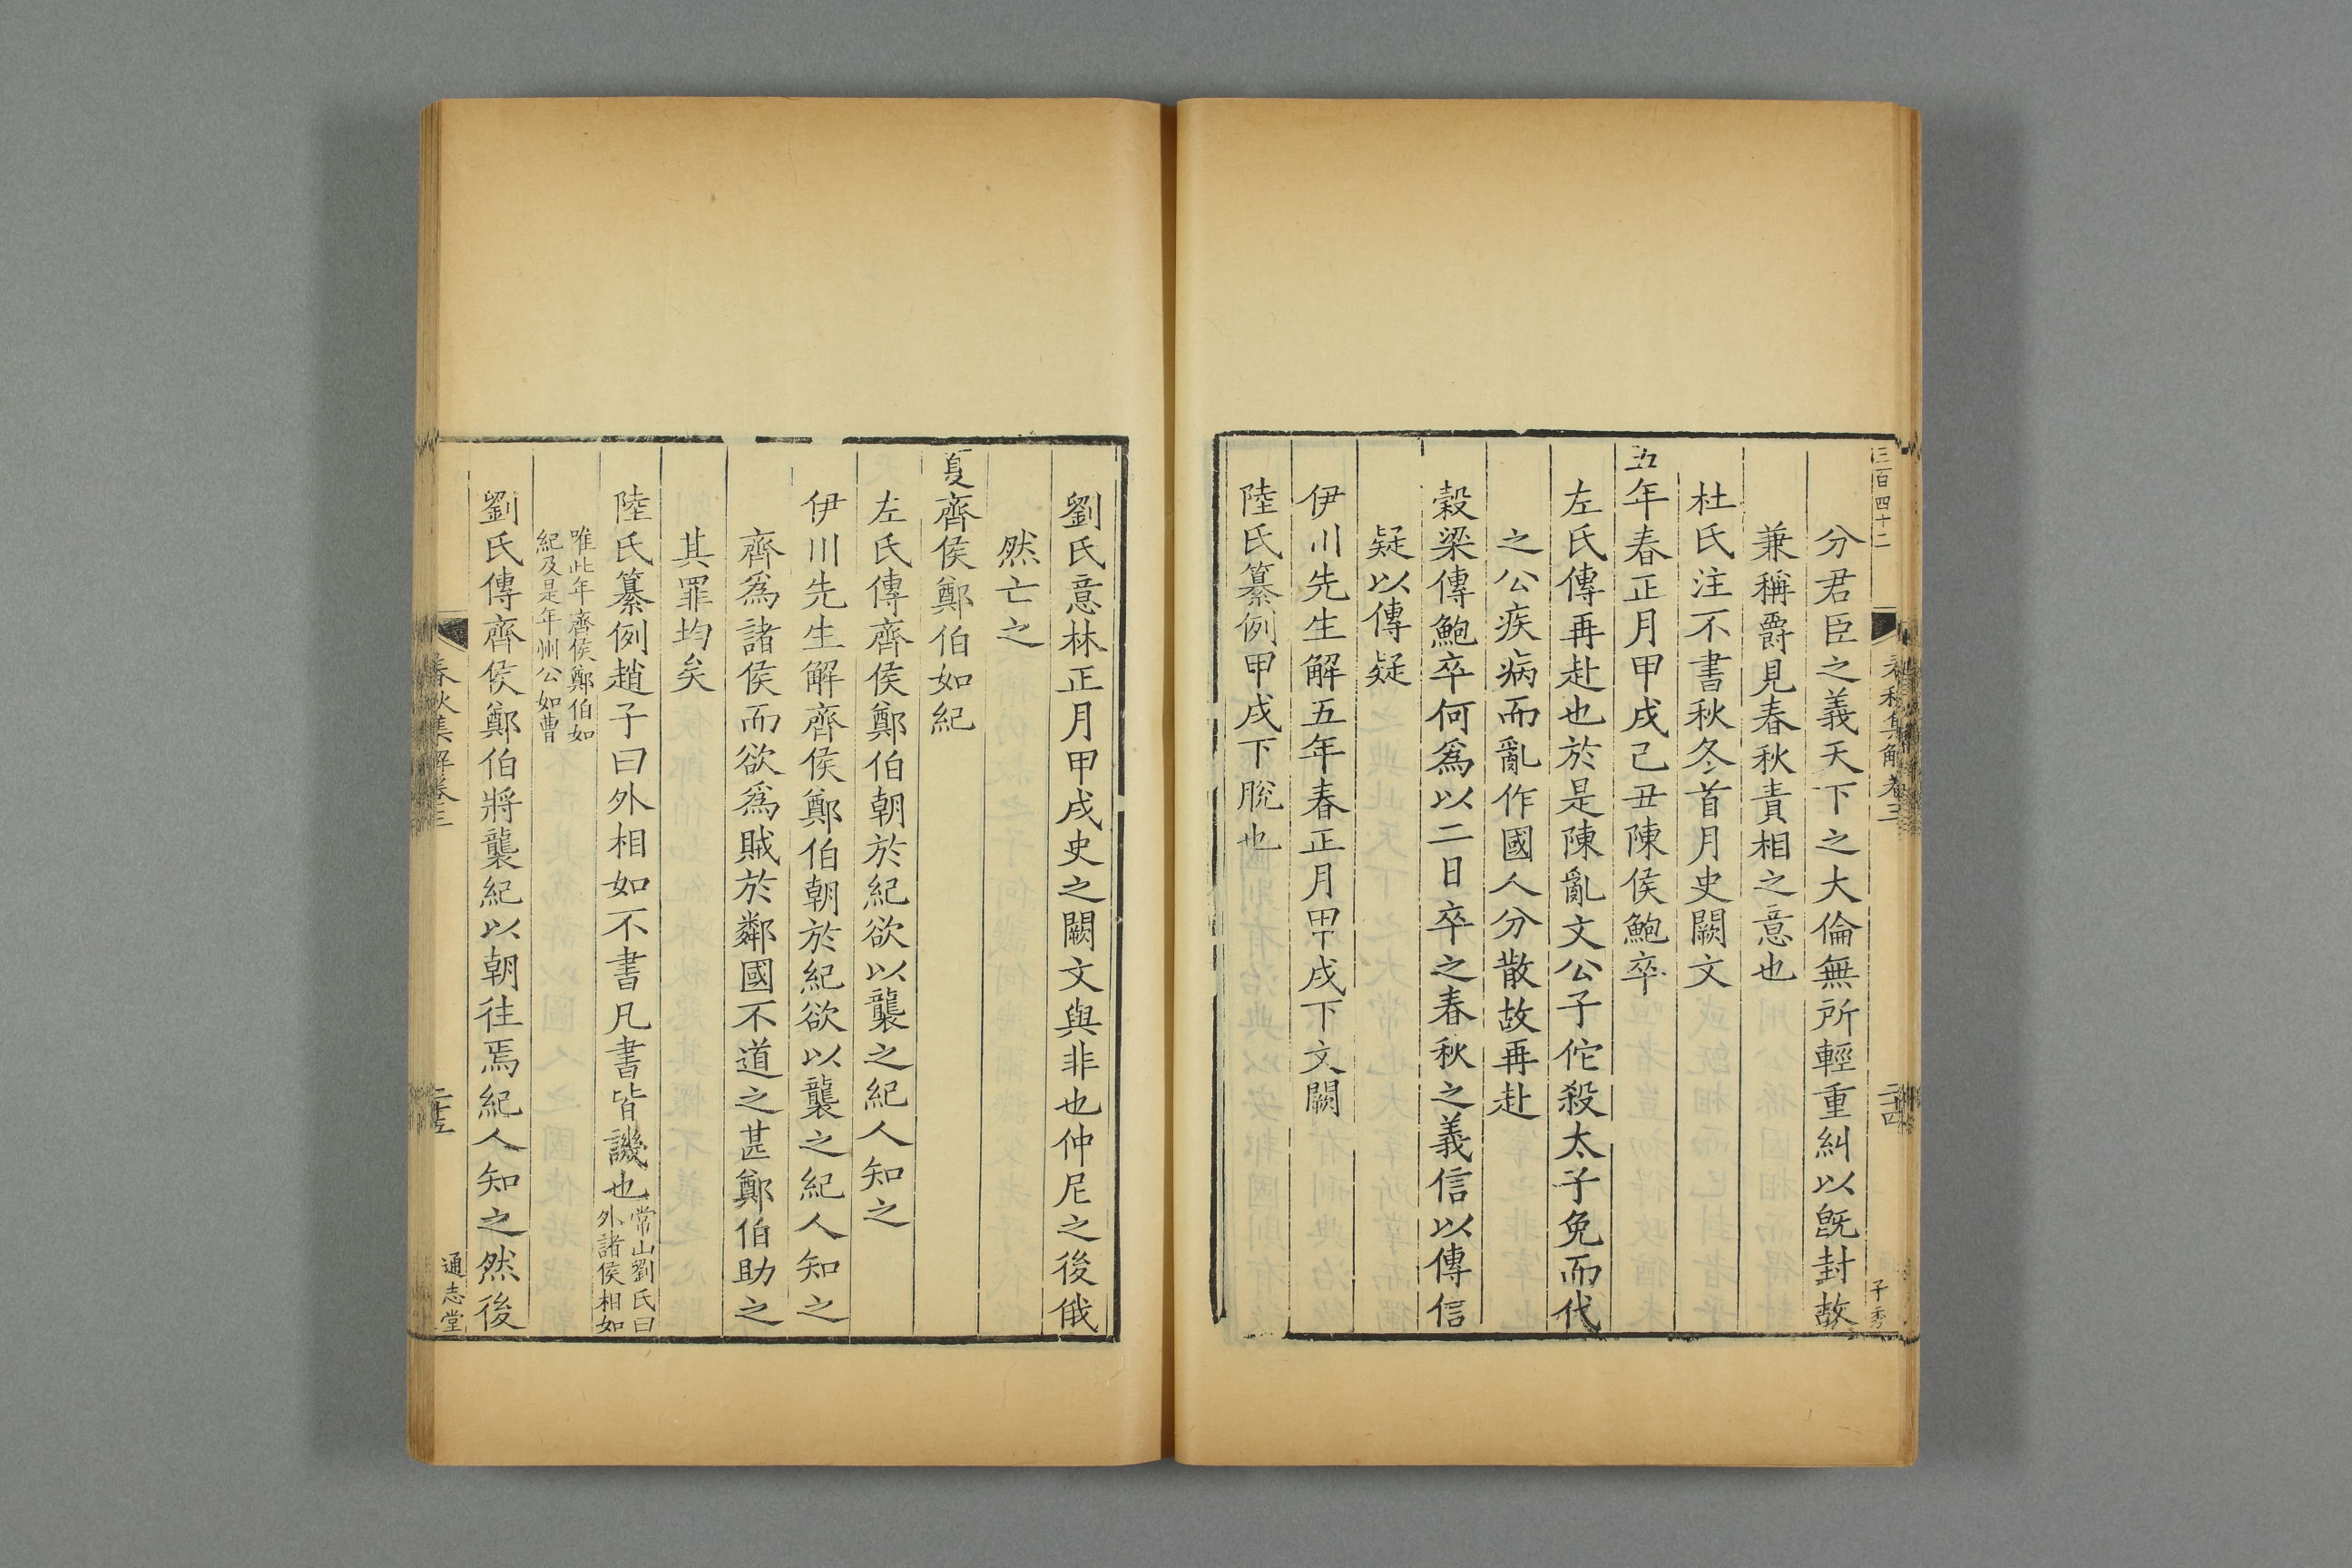 三百四十二
春秋集解卷三
二十四
子秀
分君臣之義天下之大倫無所輕重糾以旣封故
兼稱爵見春秋責相之意也
杜氏注不書秋冬首月史闕文
五年春正月甲戌己丑陳侯鮑卒
左氏傳再赴也於是陳亂文公子佗殺太子免而代
之公疾病而亂作國人分散故再赴
穀梁傳鮑卒何爲以二日卒之春秋之義信以傳信
疑以傳疑
伊川先生解五年春正月甲戌下文闕
陸氏纂例甲戌下脫也
劉氏意林正月甲戌史之闕文與非也仲尼之後俄
然亡之
夏齊侯鄭伯如紀
左氏傳齊侯鄭伯朝於紀欲以襲之紀人知之
伊川先生解齊侯鄭伯朝於紀欲以襲之紀人知之
齊爲諸侯而欲爲賊於鄰國不道之甚鄭伯助之
其罪均矣
陸氏纂例趙子曰外相如不書凡書皆譏也
常山劉氏曰
外諸侯相如
唯此年齊侯鄭伯如
紀及是年州公如曹
劉氏傳齊侯鄭伯將襲紀以朝往焉紀人知之然後
春秋集解卷三
二十五
通志堂